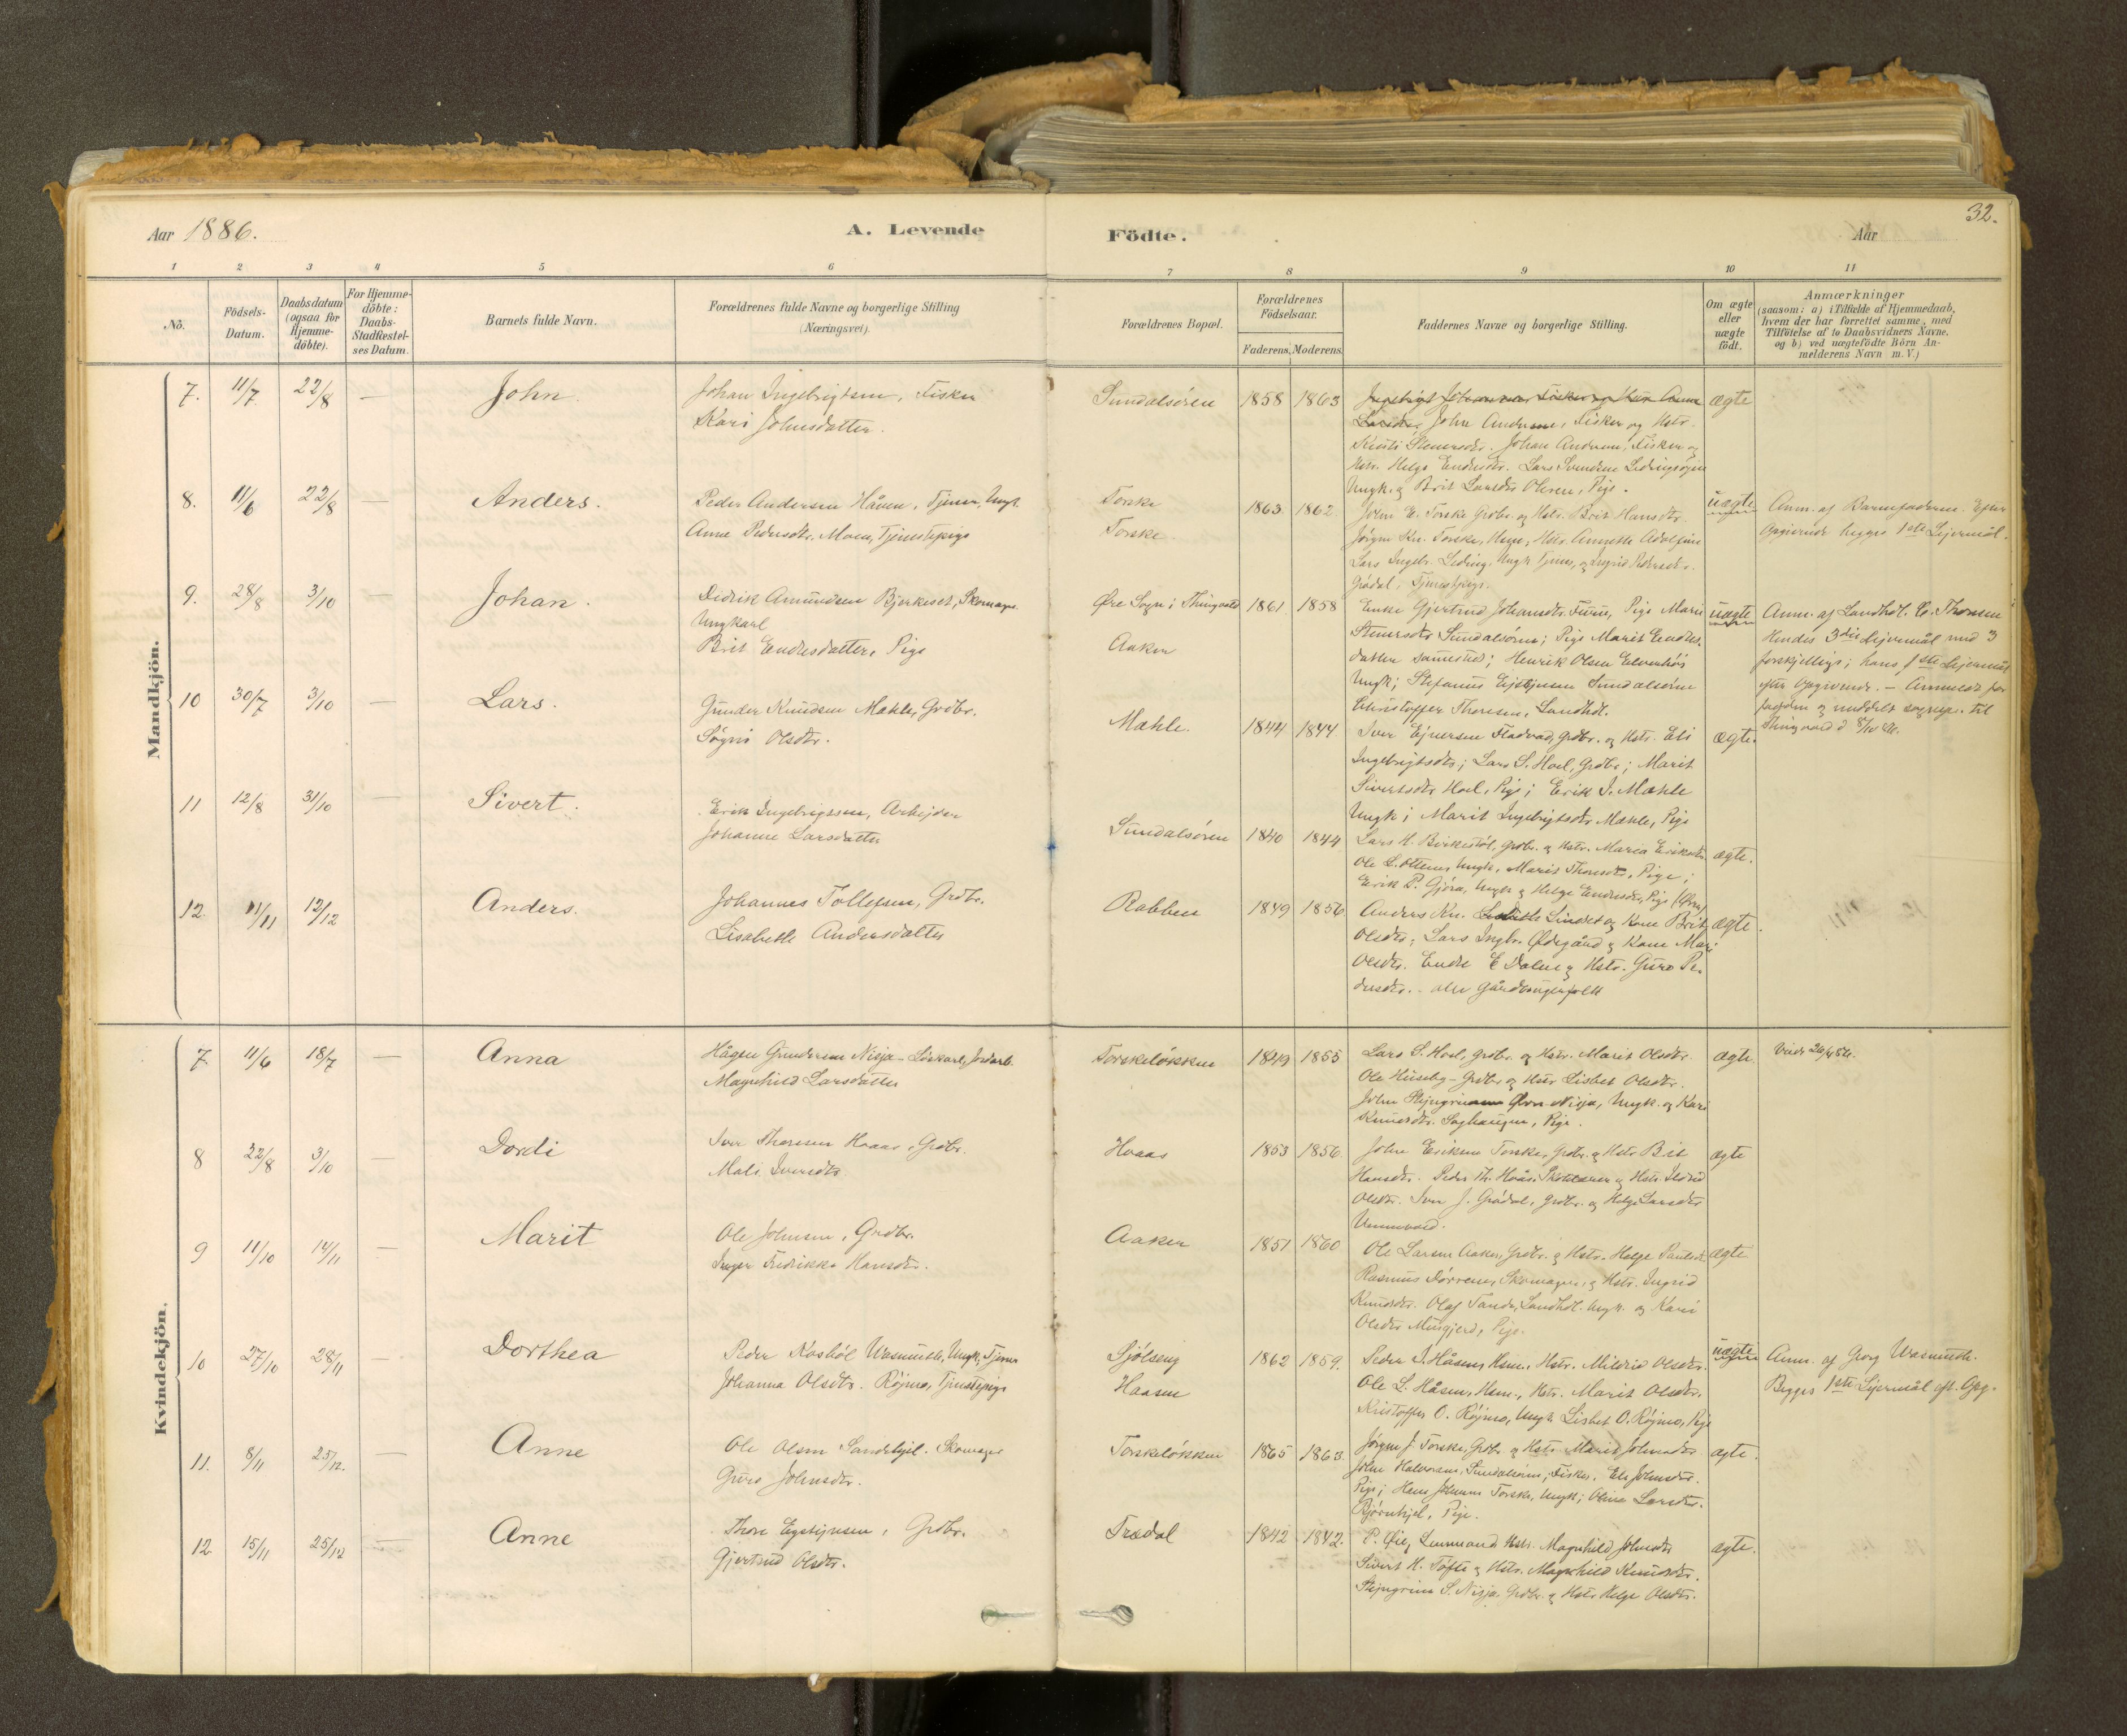 Aar 1886.
A. Levende
Födte.
Aar
32.
1 2 3 4 5 6 7 8 9 10 11
No.
Födsels-
Datum.
Daabsdatum
(ogsaa for
Hjemme-
döbte).
For Hjemme-
döbte:
Daabs-
Stadfæstel-
ses Datum.
Barnets fulde Navn.
Forældrenes fulde Navne og borgerlige Stilling
(Næringsvei).
Forældrenes Bopæl.
Forældrenes
Födselsaar.
Faderens. Moderens.
Faddernes Navne og borgerlige Stilling.
Om ægte
eller
uægte
födt.
Anmærkninger
(saasom: a) i Tilfælde af Hjemmedaab,
hvem der har forrettet samme, med
Tilföielse af to Daabsvidners Navne,
og b) ved uægtefödte Börn An-
melderens Navn m. V.)
Mandkjön.
7. 11/7 22/8 — John.
Johan Ingebrigtsen, Fisker
Kari Johnsdatter.
Sundalsören 1858 1863
John Andersen, Fisker og Hstr.
Johan Andersen, Fisker og
Hstr. Helge Endresdtr. Lars
Ungk. og Brit Larsdtr Olsen, Pige.
ægte
8. 11/6 22/8 — Anders.
Peder Andersen Håsen, Tjener, Ungk.
Anne Pedersdtr. Moen, Tjenestepige
Torske
Torske
1863. 1862.
John E. Torske Grdbr. og Hstr. Brit Hansdtr.
Jörgen Kn. Torske, Hsm., Hstr. Annette Adolfine
Lars Ingebr. Leding. Ungk Tjener, og Ingrid Pedersdtr.
Grödal, Tjenestepige.
uægte
Anm. af Barnefaderen. Efter
Opgivende begges 1ste Lejermål.
9. 28/8 3/10 — Johan.
Didrik Amundsen Bjerkeset, Skomager
Ungkarl
Brit Endresdatter, Pige
Øre Sogn i Thingvold
Aaken
1861 1858
Enke Gjertrud Johansdtr. Furu, Pige Marit
Stenersdtr Sundalsören; Pige Marit Endres-
datter sammesteds; Henrik Olsen
Ungk; Stefanus Sundalsören
Christoffer Thoresen, Landhdl.
uægte
Anm. af Landhdl. C. Thoresen
Hendes 3die Lejermål med 3
forskjellige; hans 1ste Lejermål
efter Opgivende. —
Thingvold d 8/10 86.
10 30/7 3/10 — Lars.
Gunder Knudsen Mæhle, Grdbr.
Sigri Olsdtr.
Mæhle. 1844 1844
Iver Ejnersen Fladvad, Grdbr. og Hstr. Eli
Ingebrigtsdtr; Lars S. Hoel, Grdbr; Marit
Sivertsdtr Hoel, Pige; Erik I. Mæhle
Ungk; Marit Ingebrigtsdtr Mæhle, Pige
ægte.
11 12/8 31/10 — Sivert.
Erik Ingebrigtsen, Arbejder
Johanne Larsdatter
Sundalsören 1840 1844
Lars H. Grdbr. og Hstr. Maria Eriksdtr.
Ole L. Ottem, Ungk, Marit Thoresdtr, Pige;
Erik P. Gjöra, Ungk og Helge Endresdtr, Pige
ægte.
12. 11/11 12/12 Anders.
Johannes Tollefsen, Grdbr.
Lisabeth Andersdatter
Rabben 1849 1856.
Anders Kn. og Kone Brit
Olsdtr; Lars Ingbr. Ødegård og Kone Mari
Olsdtr. Endre E Dalen og Hstr. Guro Pe-
dersdtr. - alle Gårdbrugerfolk
ægte.
Kvindekjön.
7. 11/6 18/7 — Anna
Hågen Gundersen Nisja - Löskarl, Jordarb.
Magnhild Larsdatter
Torskelökken 1849 1855
Lars S. Hoel, Grdbr. og Hstr. Marit Olsdtr.
Ole Huseby - Grdbr og Hstr Lisbet Olsdtr.
John Nisja, Ungk. og Kari
Knudsdtr. Pige.
ægte.
8 22/8 3/10 — Dordi
Iver Thoresen Hvaas, Grdbr.
Mali Iversdtr
Hvaas 1853 1856.
John Eriksen Torske, Grdbr. og Hstr Brit
Hansdtr. Peder Th. Hvås, og Hstr. Ildrid
Olsdtr. Iver J. Grödal, Grdbr. og Helge Larsdtr
ægte
9 11/10 14/11 — Marit
Ole Johnsen, Grdbr.
Inger Fredrikke Hansdtr.
Aaken 1851 1860
Ole Larsen Aaken Grdbr. og Hstr. Helge Paulsdtr
Rasmus Skomager, og Hstr. Ingrid
Knudsdtr. Olaf Tande, Landhdl. Ungk. og Kari
Olsdtr Musgjerd, Pige.
ægte
10 27/10 28/11 — Dorthea
Peder Wasmuth, Ungk, Tjener
Johanna Olsdtr. Röjmo, Tjenestepige
Sjölseng
Haasen
1862 1859.
Peder J. Håsen, Hsm., Hstr. Mildrid Olsdtr.
Ole L. Håsen, Hsm., Hstr. Marit Olsdtr.
Kristoffer O. Röjmo, Ungk. Lisbet O. Röjmo, Pige
uægte
Anm. af Georg Wasmuth.
Begges 1ste Lejermål eft. Opg.
11. 8/11 25/12. — Anne
Ole Olsen Skomager
Guro Johnsdtr.
Torskelökken 1865 1863.
Jörgen J. Torske, Grdbr. og Hstr. Marit Johnsdtr
John Halvorsen, Sundalsören, Fisker. Eli Johnsdtr.
Pige; Hans Johnsen Torske, Ungk; Olina Larsdtr.
Pige.
ægte.
12. 15/11 25/12 — Anne
Thore Eystejnsen, Grdbr.
Gjertrud Olsdtr.
Trædal 1842 1842.
P. Øie, Lensmand Hstr. Magnhild Johnsdtr
Sivert H. Tofte og Hstr. Magnhild Knudsdtr.
Stejngrim S. Nisja, Grdbr. og Hstr Helge Olsdtr.
ægte.